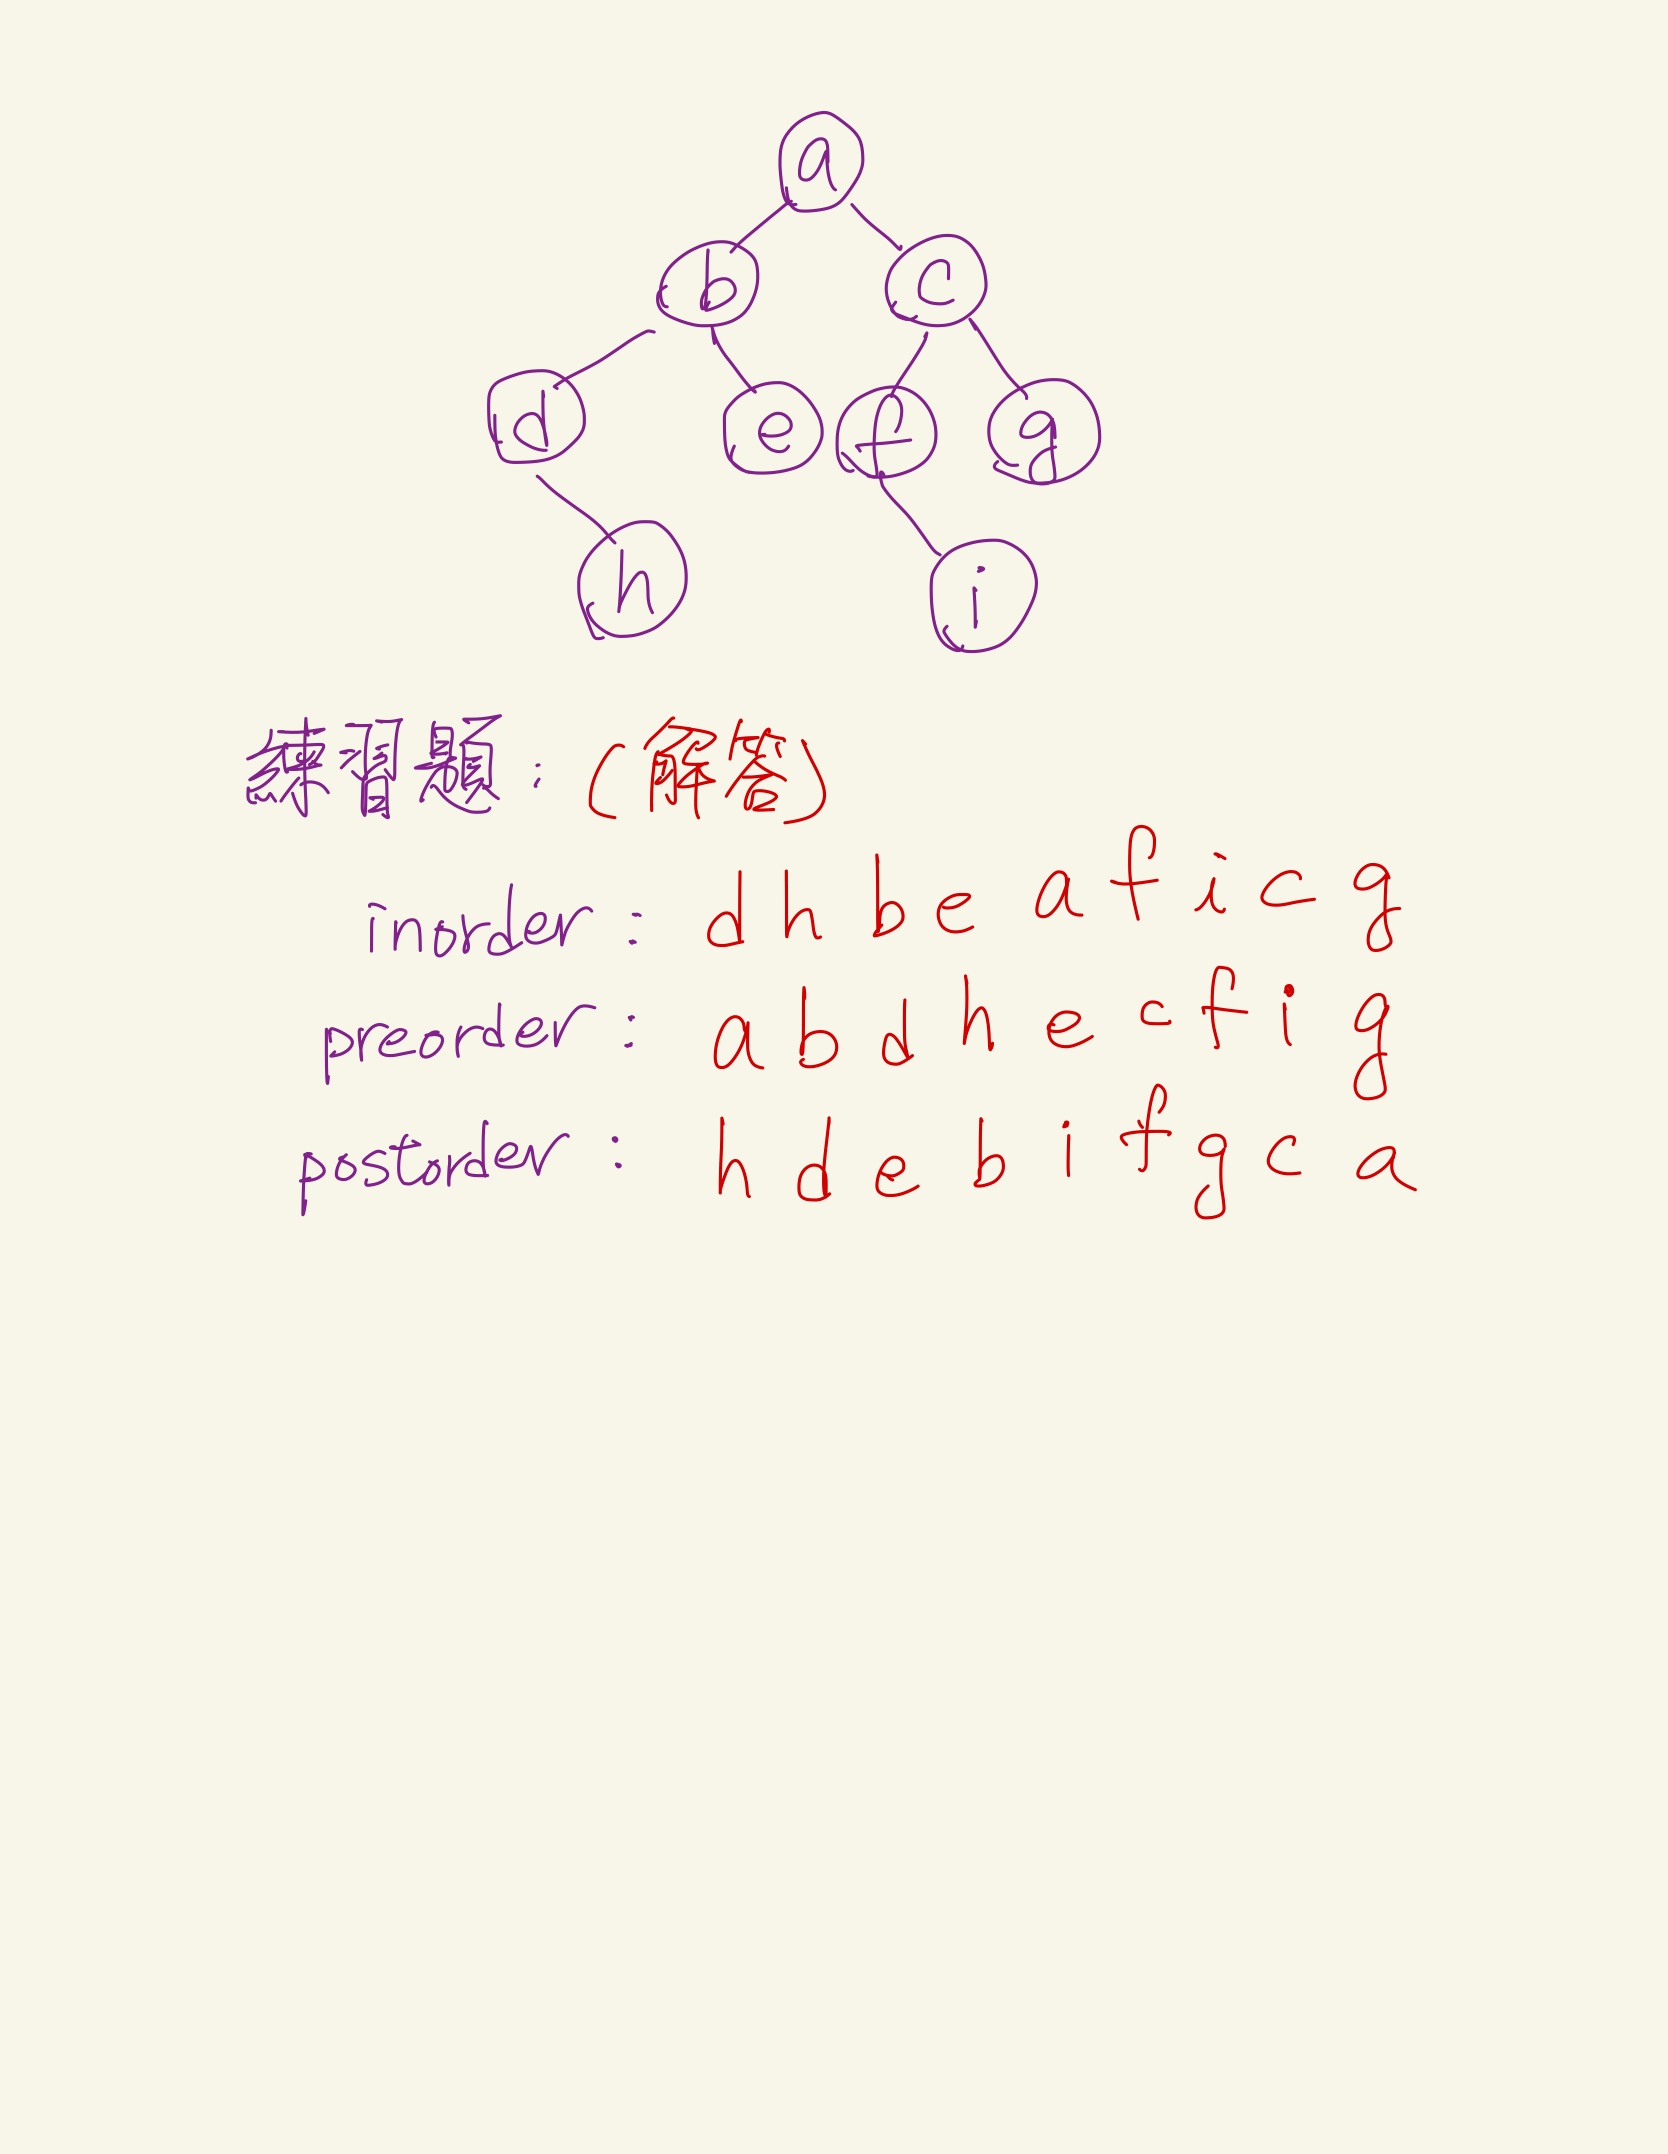 a
b c
d e f g
h i
練習題：(解答)
inorder : d h b e a f i c g
preorder : a b d h e c f i g
postorder : h d e b i f g c a